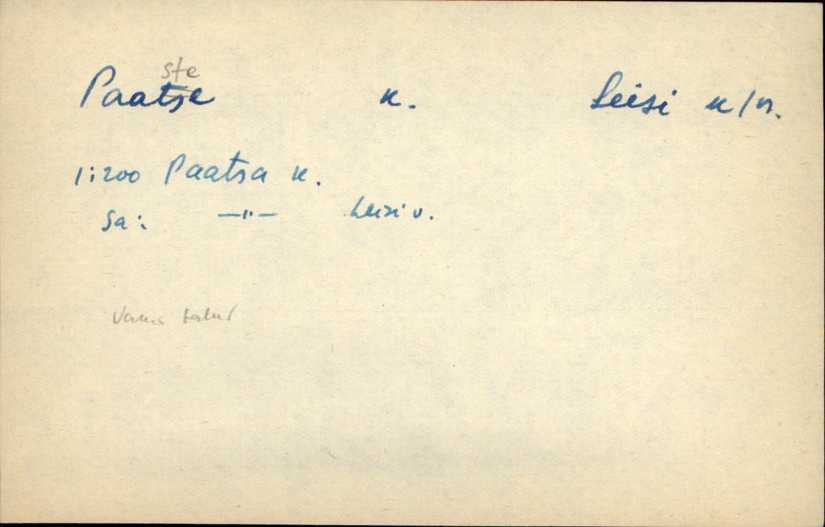 ste
Paatse k. Leisi k/n.
1:200 Paatsa k.
Sa: —"— Leisi v.
Vana talud